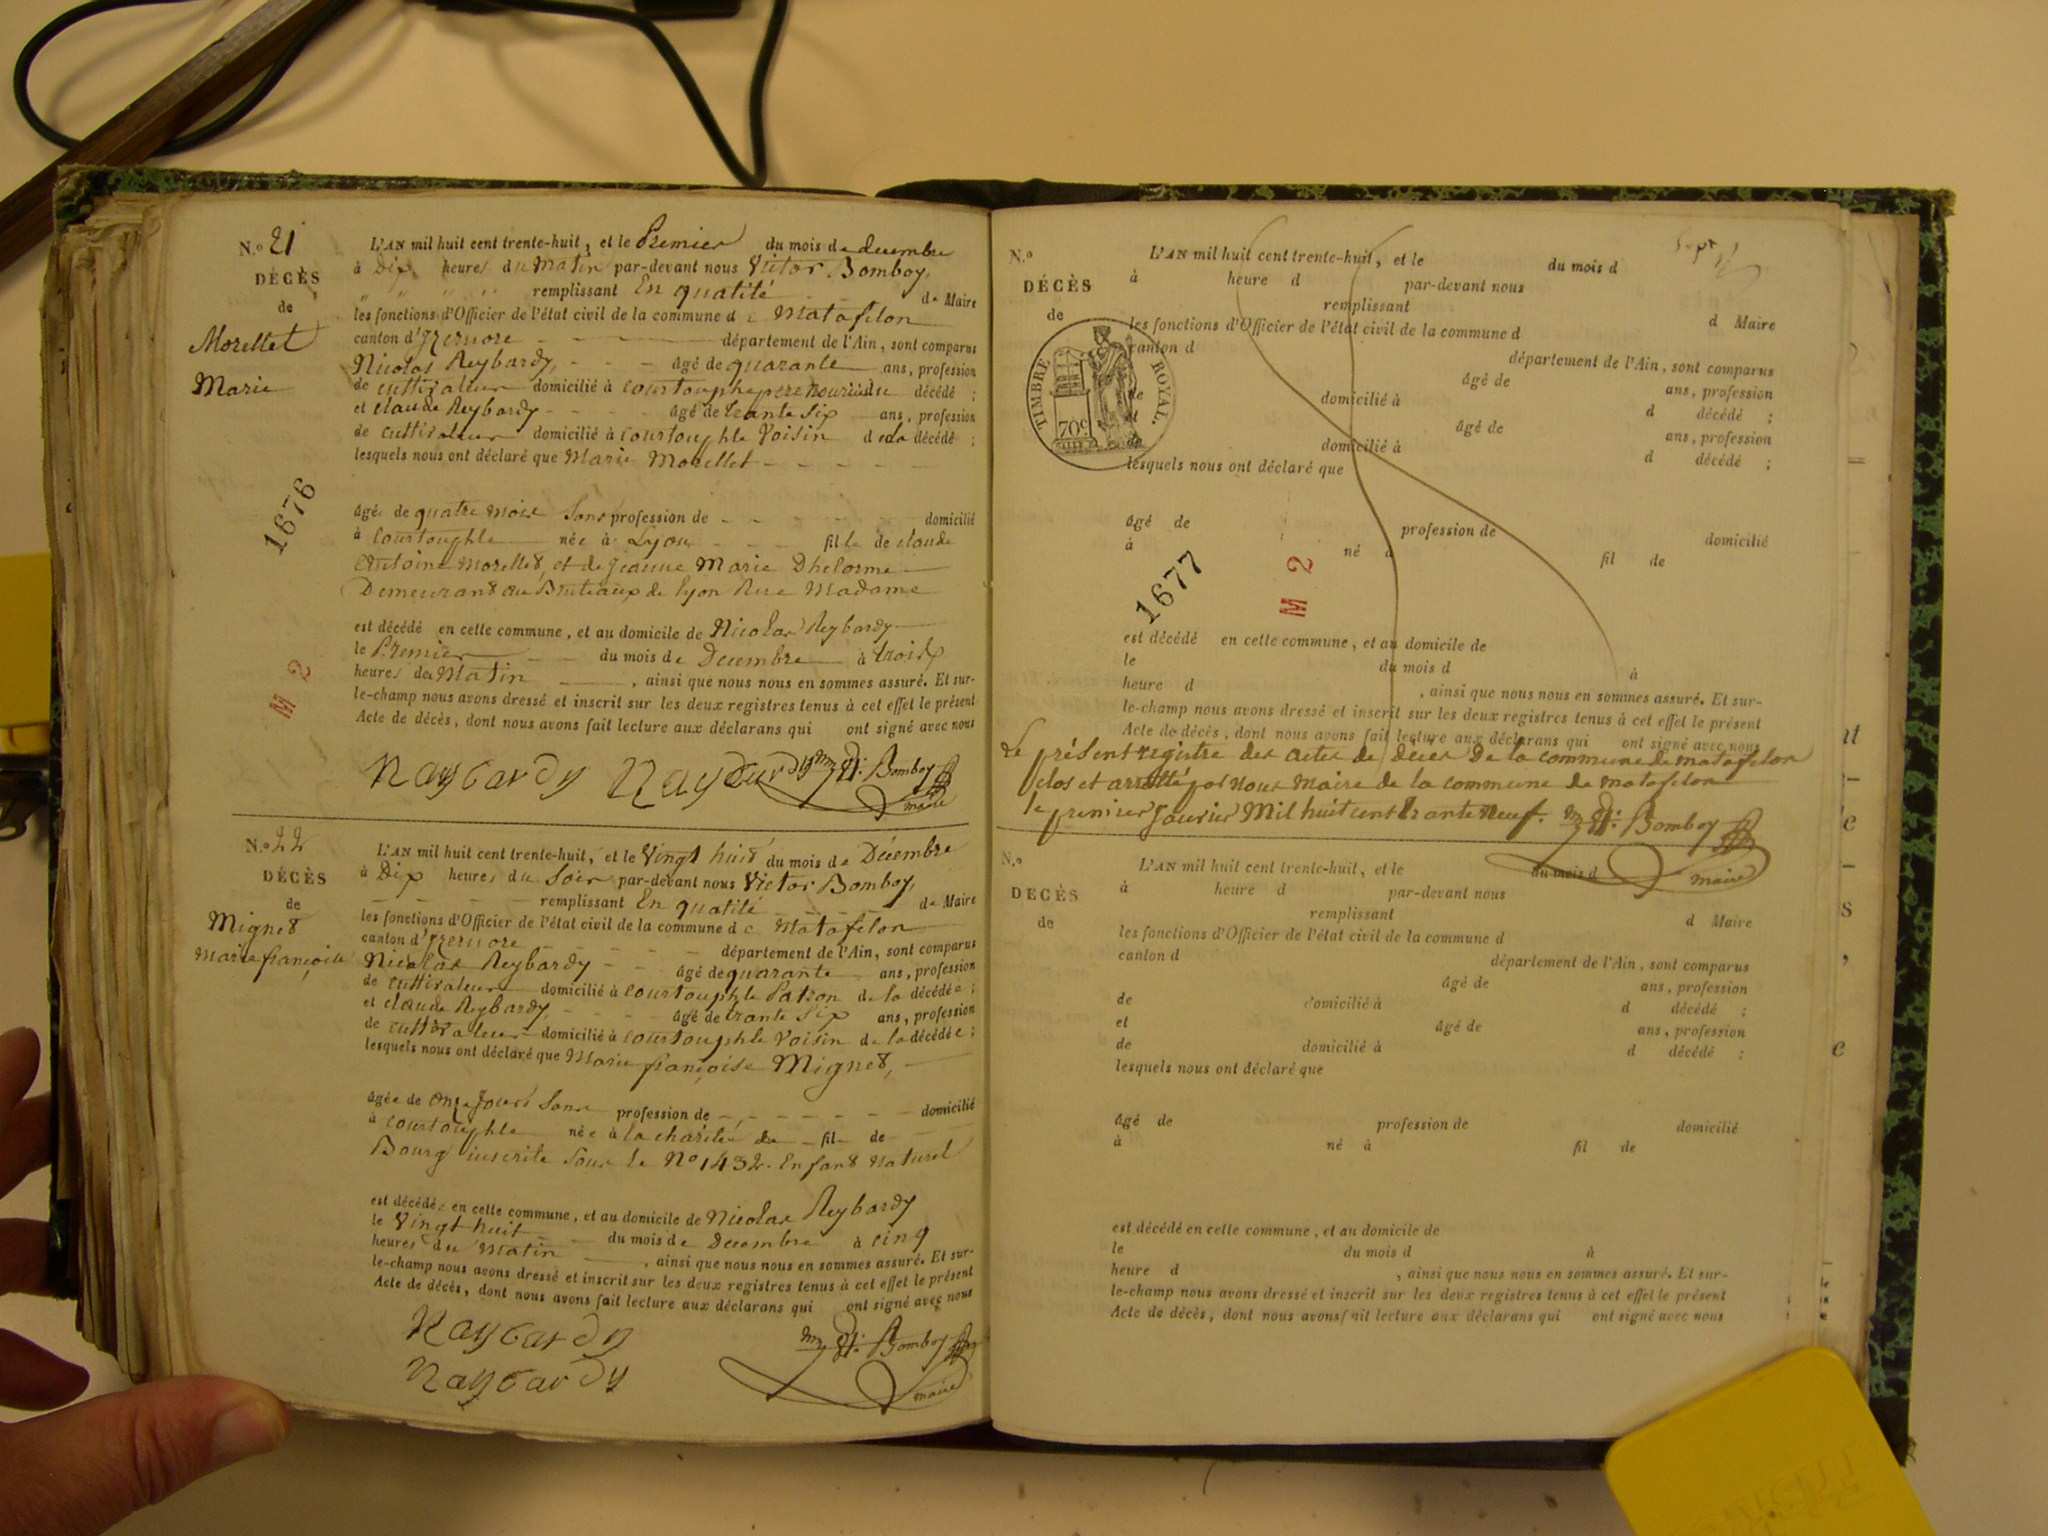 N.º 21
DÉCÈS
de
Morellet
Marie
1676
M 2
L'AN mil huit cent trente-huit, et le Premier du mois de decembre
à Dix heures du Matin par-devant nous Victor Bomboy,
remplissant En qualité de Maire
les fonctions d'Officier de l'état civil de la commune de Matafelon
canton d'Izernore département de l'Ain, sont comparus
Nicolas Reybardy, âgé de quarante ans, profession
de cultivateur domicilié à courtouphle pere nourri du décédé ;
et claude Reybardy âgé de trante Six ans, profession
de cultivateur domicilié à courtouphle Voisin de la décédé ;
lesquels nous ont déclaré que Marie Morellet
âgée de quatre mois Sans profession de domicilié
à Courtouphle née à Lyon fille de claude
Antoine Morellet, et de jeanne Marie Dhelorme
Demeurant au Broteaux de lyon Rue Madame
est décédé en cette commune, et au domicile de Nicolas Reybardy
le Premier du mois de Decembre à trois
heures du Matin, ainsi que nous nous en sommes assuré. Et sur-
le-champ nous avons dressé et inscrit sur les deux registres tenus à cet effet le présent
Acte de décès, dont nous avons fait lecture aux déclarans qui ont signé avec nous
Raybardy Raybardy Bomboy
maire
N.º 22
DÉCÈS
de
Mignet
Marie françoise
L'AN mil huit cent trente-huit, et le Vingt huit du mois de Décembre
à Dix heures du Soir par-devant nous Victor Bomboy,
remplissant En qualité de Maire
les fonctions d'Officier de l'état civil de la commune de Matafelon
canton d'Izernore département de l'Ain, sont comparus
Nicolas Reybardy âgé de quarante ans, profession
de cultivateur domicilié à courtouphle Patron de la décédée ;
et claude Reybardy, âgé de trante Six ans, profession
de cultivateur domicilié à courtouphle Voisin de la décédée ;
lesquels nous ont déclaré que Marie françoise Mignet,
âgée de onze jours Sans profession de domicilié
à courtouphle née à la charité de fil de
Bourg inscrite Sous le Nº 1432. Enfant Naturel
est décédée en cette commune, et au domicile de Nicolas Reybardy
le Vingt huit du mois de Decembre à cinq
heures du Matin, ainsi que nous nous en sommes assuré. Et sur-
le-champ nous avons dressé et inscrit sur les deux registres tenus à cet effet le présent
Acte de décès, dont nous avons fait lecture aux déclarans qui ont signé avec nous
Raybardy Bomboy
Raybardy maire
N.º
DÉCÈS
de
TIMBRE ROYAL.
70c
1677
M 2
L'AN mil huit cent trente-huit, et le du mois d
à heure d par-devant nous
remplissant d Maire
les fonctions d'Officier de l'état civil de la commune d
canton d département de l'Ain, sont comparus
âgé de ans, profession
de domicilié à d décédé ;
et âgé de ans, profession
de domicilié à d décédé ;
lesquels nous ont déclaré que
âgé de profession de domicilié
à né à fil de
est décédé en cette commune, et au domicile de
le du mois d à
heure d , ainsi que nous nous en sommes assuré. Et sur-
le-champ nous avons dressé et inscrit sur les deux registres tenus à cet effet le présent
Acte de décès, dont nous avons fait lecture aux déclarans qui ont signé avec nous
Le présent registre des actes de décès De la commune de matafelon
clos et arretté par nous Maire de la commune de matafelon
le premier Janvier Mil huit cent trante Neuf. Bomboy
maire
N.º
DÉCÈS
de
L'AN mil huit cent trente-huit, et le du mois d
à heure d par-devant nous
remplissant d Maire
les fonctions d'Officier de l'état civil de la commune d
canton d département de l'Ain, sont comparus
âgé de ans, profession
de domicilié à d décédé ;
et âgé de ans, profession
de domicilié à d décédé ;
lesquels nous ont déclaré que
âgé de profession de domicilié
à né à fil de
est décédé en cette commune, et au domicile de
le du mois d à
heure d , ainsi que nous nous en sommes assuré. Et sur-
le-champ nous avons dressé et inscrit sur les deux registres tenus à cet effet le présent
Acte de décès, dont nous avons fait lecture aux déclarans qui ont signé avec nous